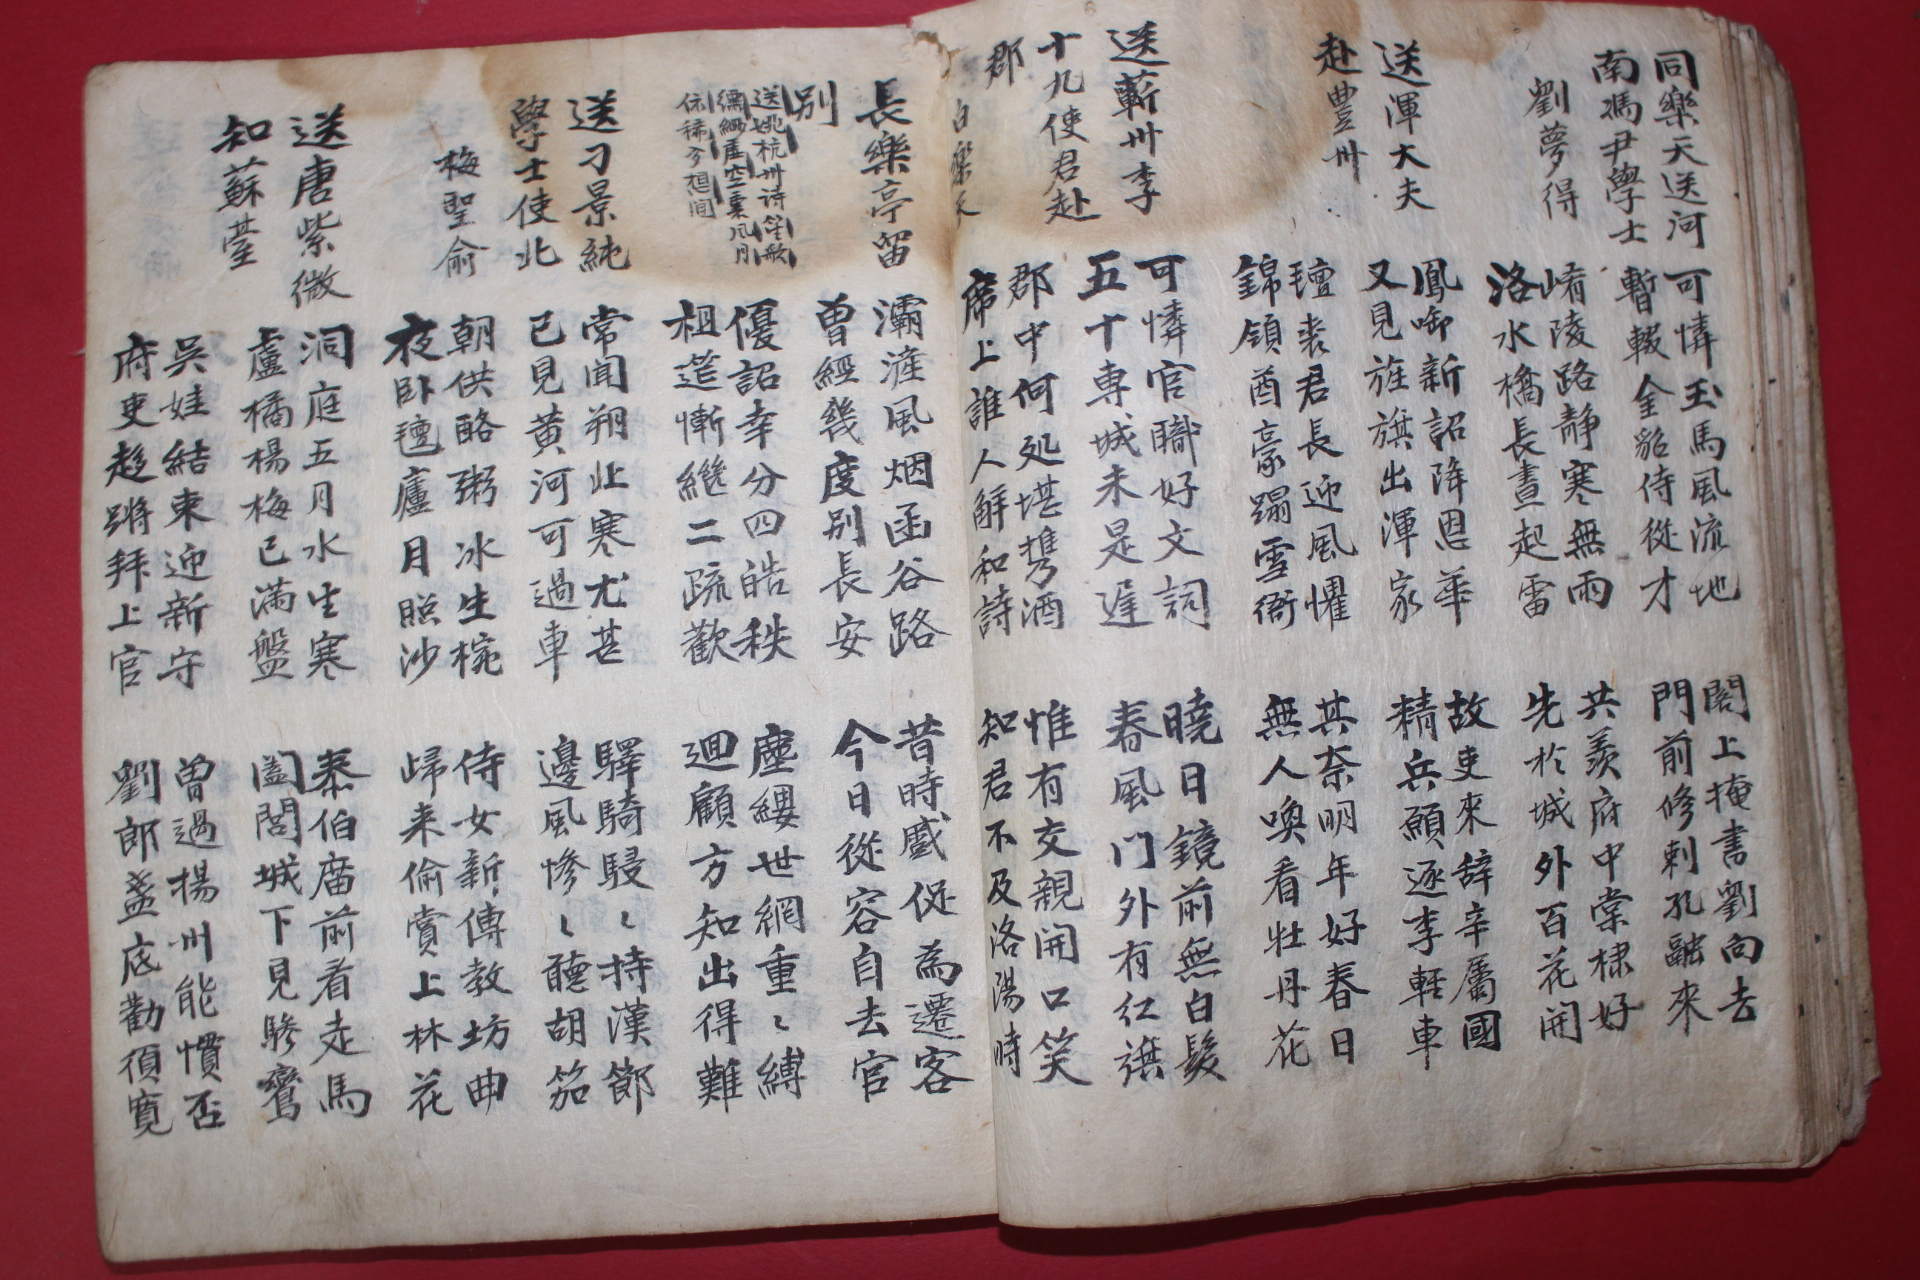 同樂天送河
南馮尹學士
劉夢得
可憐玉馬風流地
暫輟金貂侍從才
閣上掩書劉向去
門前修刺孔融來
崤陵路靜寒無雨
洛水橋長晝起雷
共羨府中棠棣好
先於城外百花開
送渾大夫
赴豊州
鳳啣新詔降恩華
又見旌旗出渾家
故吏來辞辛屬國
精兵願逐李輕車
氊裘君長迎風懼
錦領酋豪蹋雪衙
其奈明年好春日
無人喚看牡丹花
送蘄州李
十九使君赴
郡
白樂天
可憐官職好文詞
五十専城未是遅
曉日鏡前無白髮
春風门外有红旗
郡中何処堪携酒
席上誰人解和詩
惟有交親開口笑
知君不及洛陽時
長樂亭留
別
灞滻風烟函谷路
曾經幾度別長安
昔時蹙促為遷客
今日從容自去官
送姚杭州诗笙歌
縹緲虛空裏风月
依稀夢想间
優詔幸分四皓秩
祖筵慚繼二疏歡
塵纓世網重〻縛
迴顧方知出得難
送刁景純
學士使北
梅聖俞
常聞朔北寒尤甚
已見黄河可過車
驛騎駸〻持漢節
邊風慘〻聽胡笳
朝供酪粥冰生椀
夜卧氊廬月照沙
侍女新傳教坊曲
歸来偷賞上林花
送唐紫微
知蘇䑓
洞庭五月水生寒
盧橘楊梅已满盤
泰伯庿前看走馬
闔閭城下見驂鸞
吳娃結束迎新守
府吏趍蹡拜上官
曾過揚州能慣否
劉郎盞底勸須寬